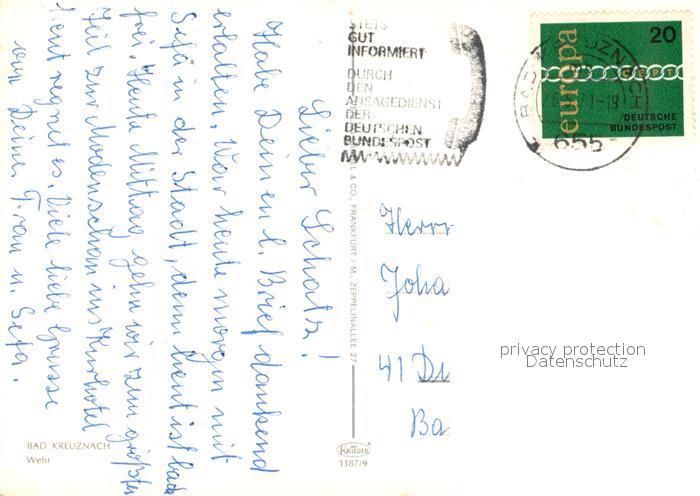 STETS
GUT
INFORMIERT
DURCH
DEN
ANSAGEDIENST
DER
DEUTSCHEN
BUNDESPOST
20
europa
CEPT
DEUTSCHE
BUNDESPOST
BAD KREUZNACH
655
Lieber Schatz!
Habe Deinen l. Brief dankend
erhalten. War heute morgen mit
Sefa in der Stadt, denn heut ist bade
frei. Heute Mittag gehn wir zum größten
Teil zur Modenschau ins Kurhotel
heut regnet es. Viele liebe Grüsse
von Deiner Frau u. Sefa.
& CO., FRANKFURT / M., ZEPPELINALLEE 27
Herrn
Joha
41 Du
Ba
privacy protection
Datenschutz
BAD KREUZNACH
Wehr
KRÜGER
1187/9